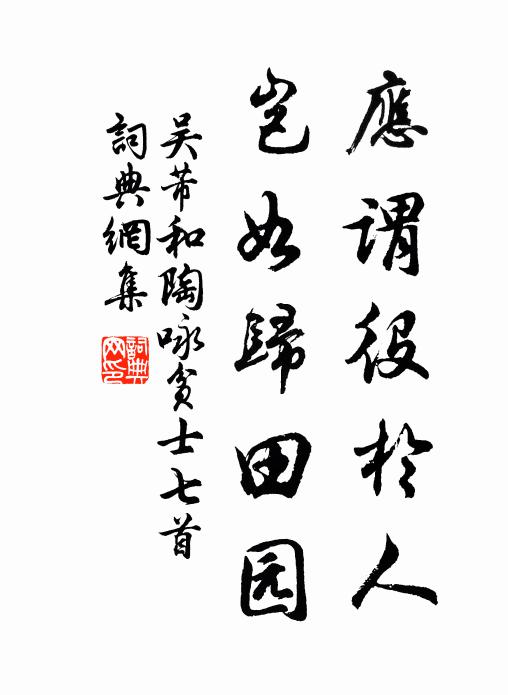 應謂役於人
豈如歸田园
吴芾和陶咏贫士七首
詞典網集
詞典网印